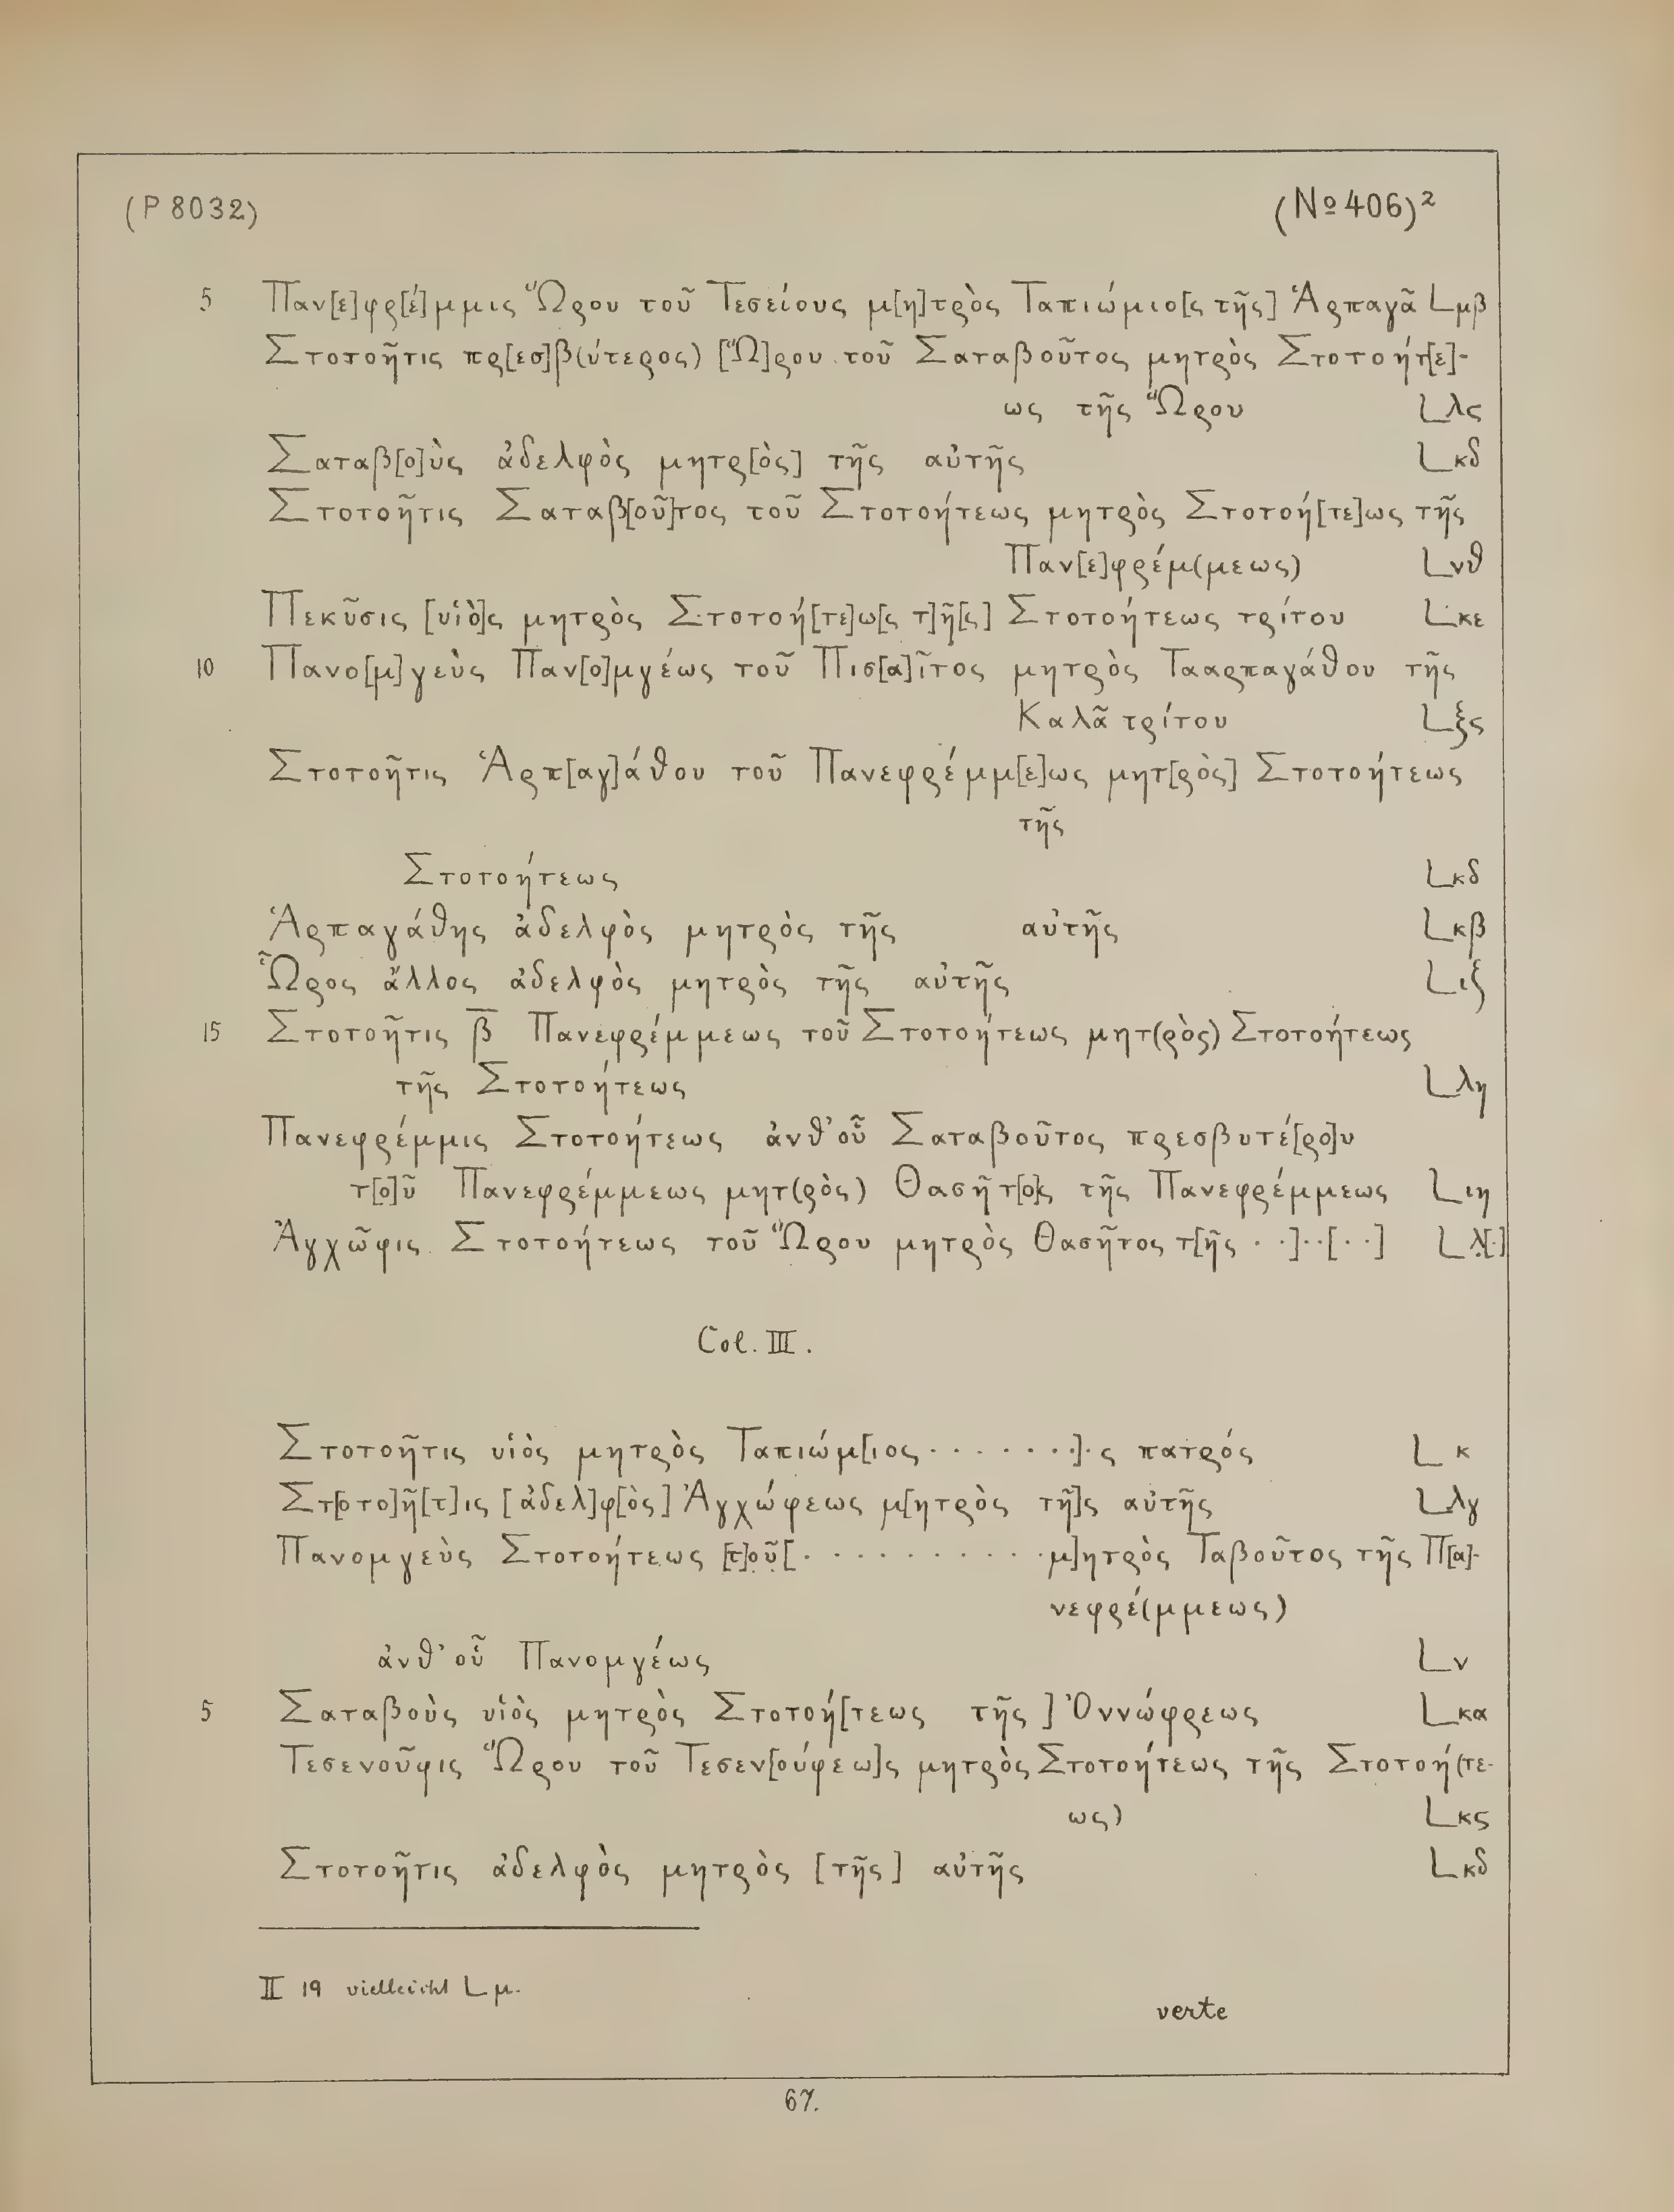 (P 8032) (Nº 406)²
5 Παν[ε]φρ[έ]μμις Ὥρου τοῦ Τεσείους μ[η]τρὸς Ταπιώμιο[ς τῆς] Ἁρπαγᾶ Lμβ
Στοτοῆτις πρ[εσ]β(ύτερος) [Ὥ]ρου τοῦ Σαταβοῦτος μητρὸς Στοτοήτ[ε]-
ως τῆς Ὥρου Lλς
Σαταβ[ο]ὺς ἀδελφὸς μητρ[ὸς] τῆς αὐτῆς Lκδ
Στοτοῆτις Σαταβ[οῦ]τος τοῦ Στοτοήτεως μητρὸς Στοτοή[τε]ως τῆς
Παν[ε]φρέμ(μεως) Lνθ
Πεκῦσις [υἱὸ]ς μητρὸς Στοτοή[τε]ω[ς τ]ῆ[ς] Στοτοήτεως τρίτου Lκε
10 Πανο[μ]γεὺς Παν[ο]μγέως τοῦ Πισ[α]ῖτος μητρὸς Τααρπαγάθου τῆς
Καλᾶ τρίτου Lξς
Στοτοῆτις Ἁρπ[αγ]άθου τοῦ Πανεφρέμμ[ε]ως μητ[ρὸς] Στοτοήτεως
τῆς
Στοτοήτεως Lκδ
Ἁρπαγάθης ἀδελφὸς μητρὸς τῆς αὐτῆς Lκβ
Ὧρος ἄλλος ἀδελφὸς μητρὸς τῆς αὐτῆς Lιξ
15 Στοτοῆτις β̅ Πανεφρέμμεως τοῦ Στοτοήτεως μητ(ρὸς) Στοτοήτεως
τῆς Στοτοήτεως Lλη
Πανεφρέμμις Στοτοήτεως ἀνθ' οὗ Σαταβοῦτος πρεσβυτέ[ρο]υ
τ[ο]ῦ Πανεφρέμμεως μητ(ρὸς) Θασῆτ[ο]ς τῆς Πανεφρέμμεως Lιη
Ἀγχῶφις Στοτοήτεως τοῦ Ὥρου μητρὸς Θασῆτος τ[ῆς . .]..[. .] Lλ̣[.]
Col. III.
Στοτοῆτις υἱὸς μητρὸς Ταπιώμ[ιος . . . . . . .].ς πατρός Lκ
Στ[οτο]ῆ[τ]ις [ἀδελ]φ[ὸς] Ἀγχώφεως μ[ητρὸς τῆ]ς αὐτῆς Lλγ
Πανομγεὺς Στοτοήτεως [τ]ο̣ῦ̣[. . . . . . . . . . μ]ητρὸς Ταβοῦτος τῆς Π[α]-
νεφρέ(μμεως)
ἀνθ' οὗ Πανομγέως Lν
5 Σαταβοὺς υἱὸς μητρὸς Στοτοή[τεως τῆς] Ὀννώφρεως Lκα
Τεσενοῦφις Ὥρου τοῦ Τεσεν[ούφεω]ς μητρὸς Στοτοήτεως τῆς Στοτοή(τε-
ως) Lκς
Στοτοῆτις ἀδελφὸς μητρὸς [τῆς] αὐτῆς Lκδ
II 19 vielleicht Lμ.
verte
67.